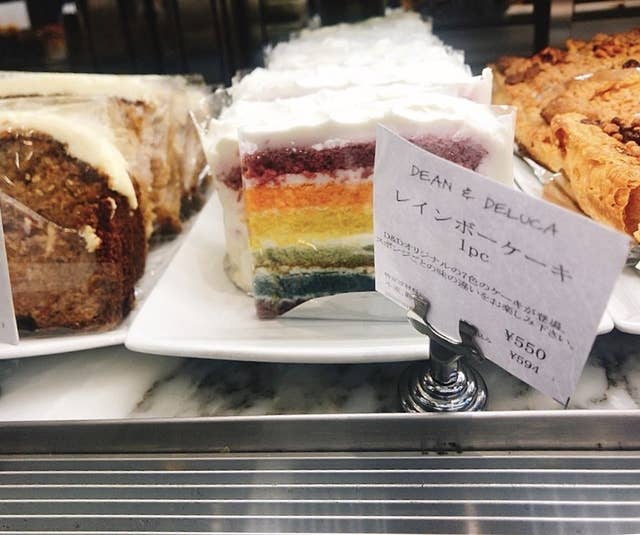 DEAN & DELUCA
レインボーケーキ
1pc
D&Dオリジナルの7色のケーキが登場。
スポンジごとの味の違いをお楽しみ下さい。
¥550
¥594